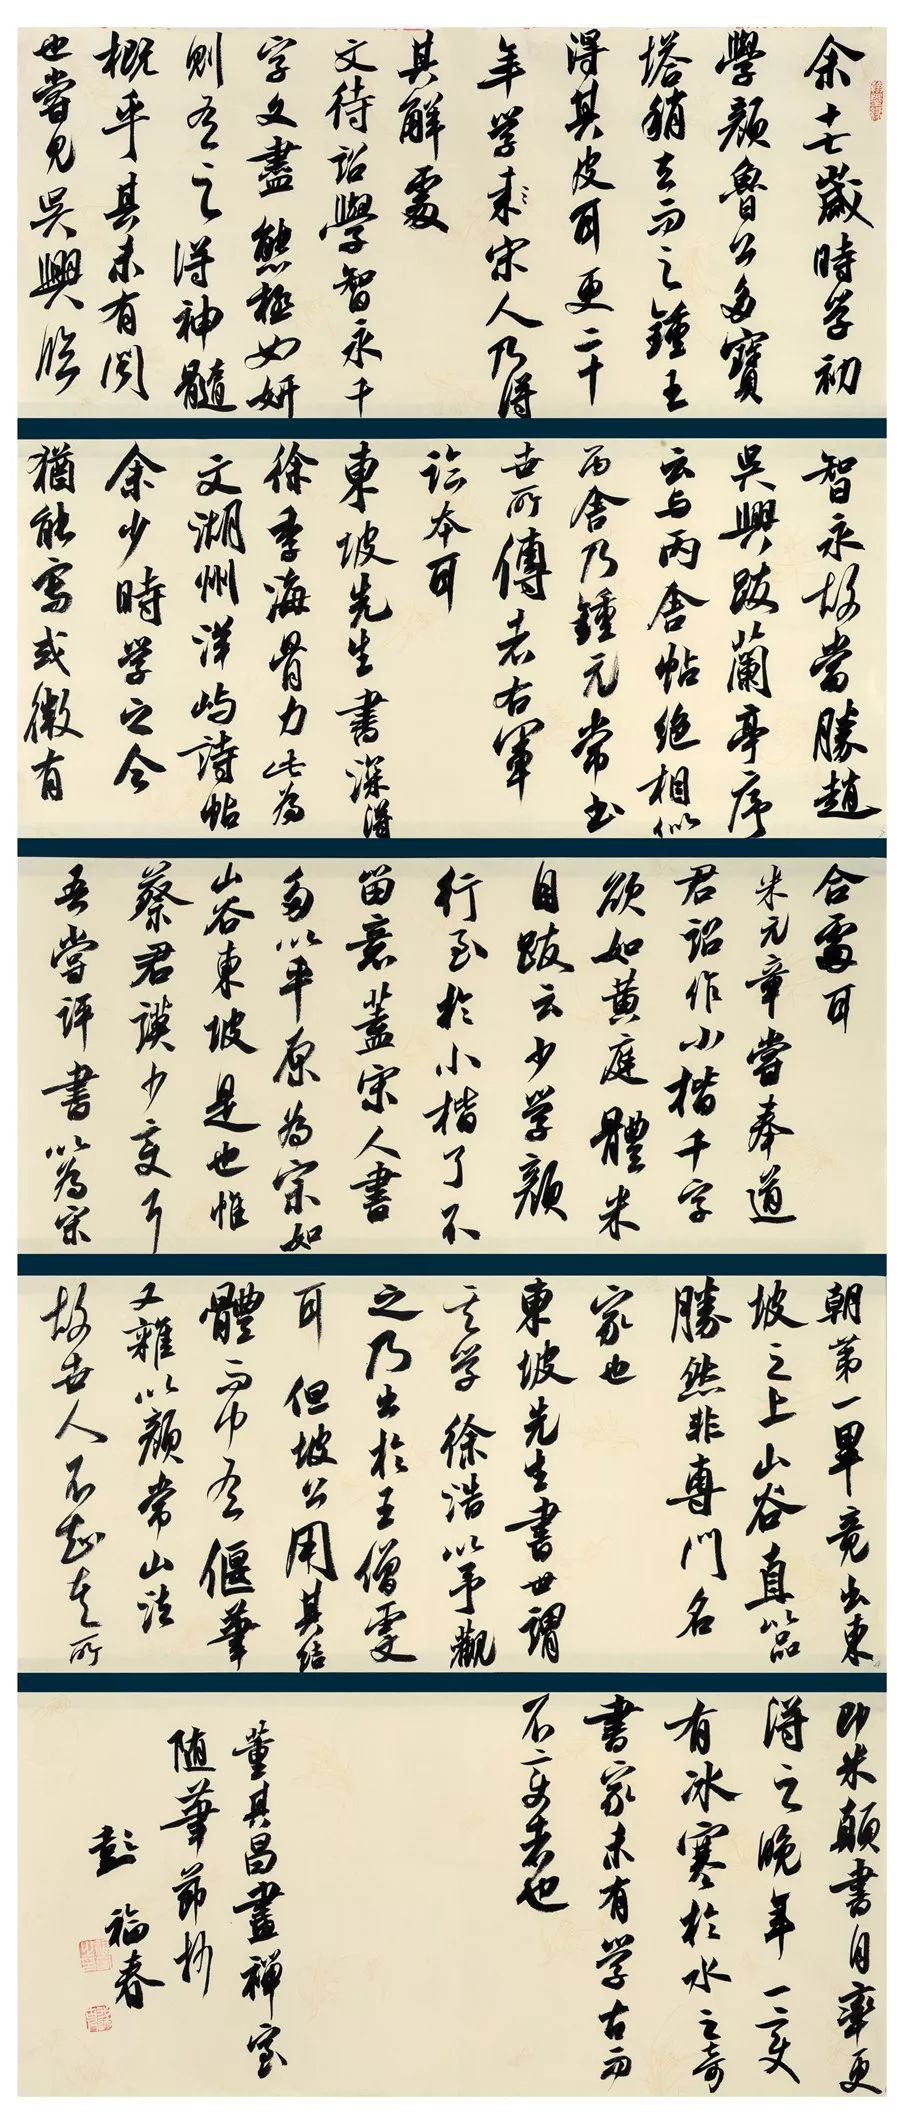 余十七歲時学初
學顏魯公多寶
塔稍去而之鍾王
得其皮耳更二十
年学宋人乃得
其解處
文待詔學智永千
字文盡態極妍
則有之得神髓
概乎其未有聞
也嘗見吳興臨
智永故當勝趙
吳興跋蘭亭序
云与丙舍帖絶相似
丙舍乃鍾元常書
世所傳者右軍
臨本耳
東坡先生書深得
徐季海骨力此為
文湖州洋嶼詩帖
余少時学之今
猶能寫或微有
合處耳
米元章嘗奉道
君詔作小楷千字
欲如黄庭體米
自跋云少学顏
行至於小楷了不
留意蓋宋人書
多以平原為宗如
山谷東坡是也惟
蔡君謨少變耳
吾嘗評書以為宋
朝第一畢竟出東
坡之上山谷直以品
勝然非專門名
家也
東坡先生書世謂
其学徐浩以予觀
之乃出於王僧虔
耳但坡公用其結
體而中有偃筆
又雜以顏常山法
故世人不知其所
即米顛書自率更
得之晚年一變
有冰寒於水之奇
書家未有学古而
不變者也
董其昌畫禅室
随筆節抄
彭福春